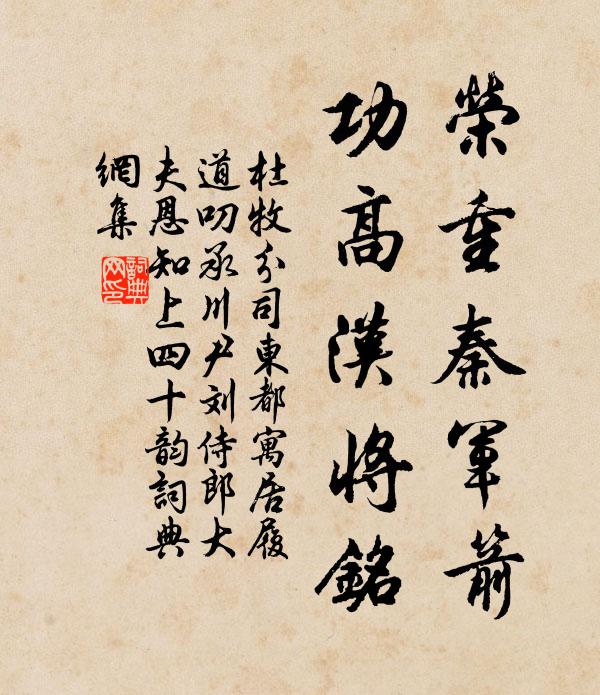 榮重秦軍箭
功高漢將銘
杜牧分司東都寓居履
道叨承川尹刘侍郎大
夫恩知上四十韵詞典
網集
詞典
网印